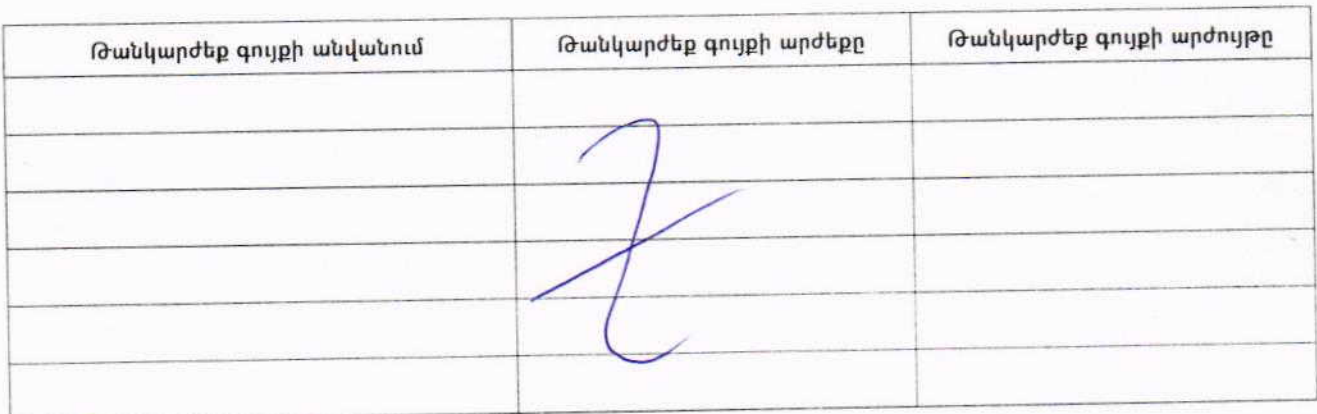 Թանկարժեք գույքի անվանում
Թանկարժեք գույքի արժեքը
Թանկարժեք գույքի արժույթը